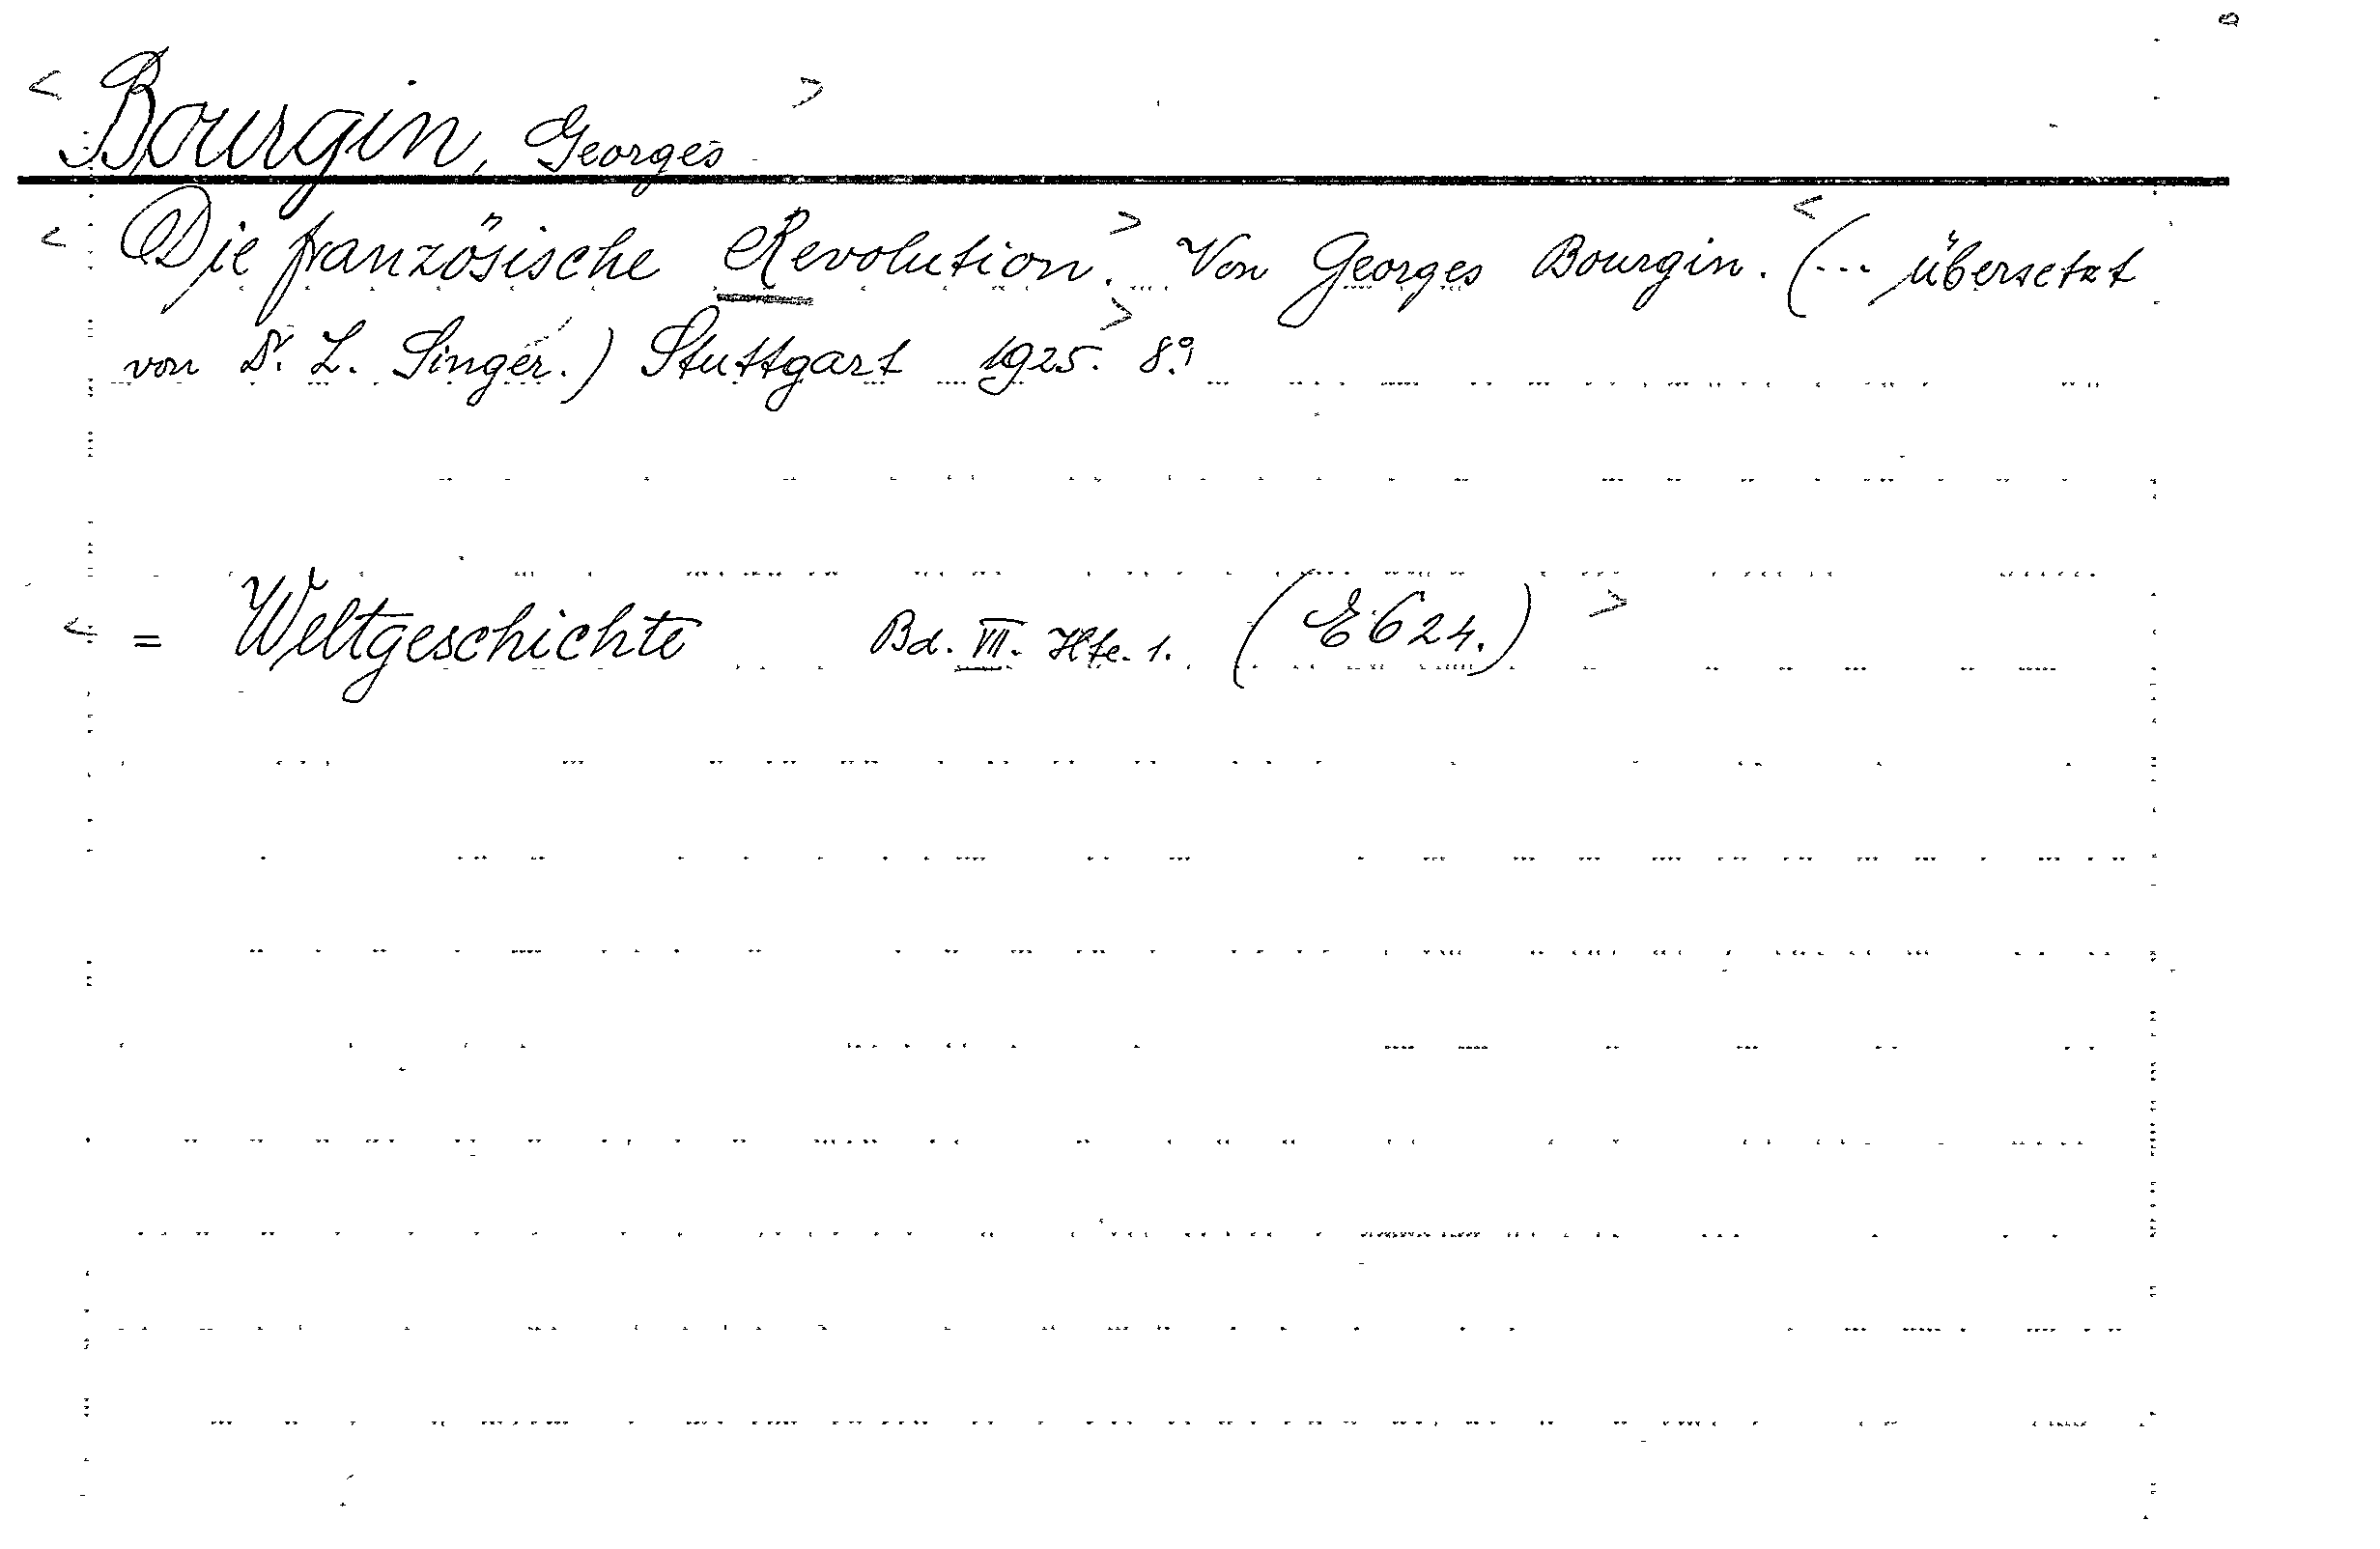 < Bourgin, Georges >
< Die französische Revolution. > Von Georges Bourgin. < (... übersetzt
von Dr. L. Singer.) Stuttgart 1925. > 8°.
< = Weltgeschichte Bd. VII. Hfe. 1. (E 624.) >